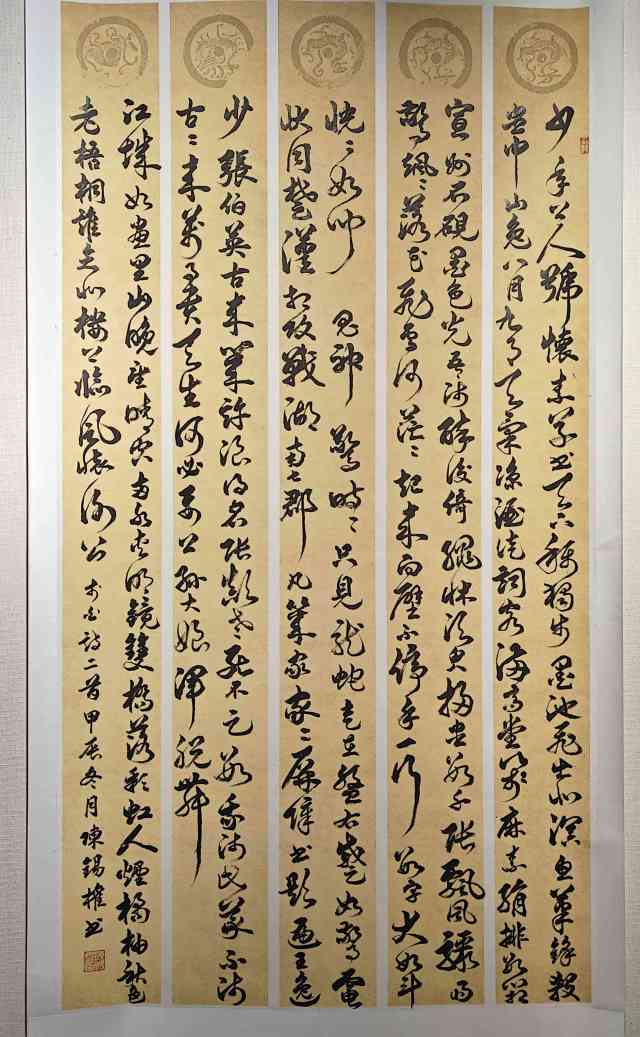 少年上人號懷素草書天下稱獨步墨池飛出北溟魚筆鋒殺
盡中山兔八月九月天氣涼酒徒詞客滿高堂箋麻素絹排數箱
宣州石硯墨色光吾師醉後倚繩牀須臾掃盡數千張飄風驟雨
驚颯々落花飛雪何茫々起來向壁不停手一行數字大如斗
恍々如聞鬼神驚時々只見龍蛇走左盤右蹙如驚電
狀同楚漢相攻戰湖南七郡凡幾家家々屏障書題遍王逸
少張伯英古來幾許浪得名張顛老死不足數我師此義不師
古々來萬事貴天生何必要公孫大娘渾脫舞
江城如畫里山晚望晴空兩水夾明鏡雙橋落彩虹人煙橘柚秋色
老梧桐誰念北樓上臨風懷謝公 李白詩二首甲辰冬月陳錫權書